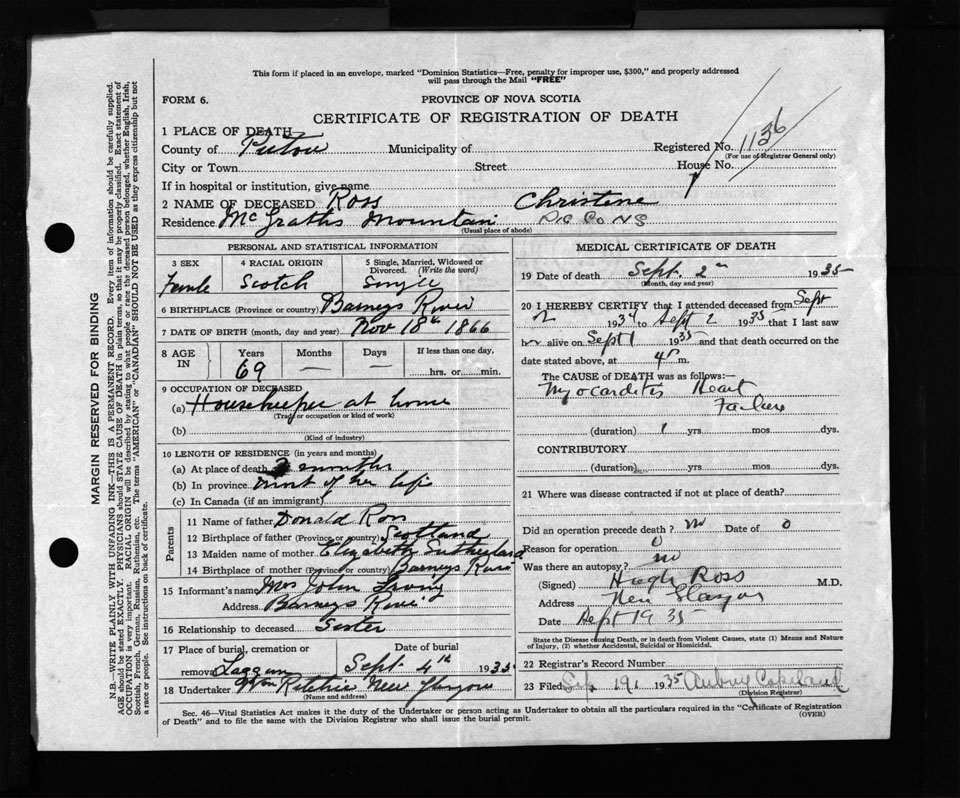 This form if placed in an envelope, marked "Dominion Statistics—Free, penalty for improper use, $300," and properly addressed
will pass through the Mail "FREE"
FORM 6.
PROVINCE OF NOVA SCOTIA
CERTIFICATE OF REGISTRATION OF DEATH
1 PLACE OF DEATH
Registered No. 1136
(For use of Registrar General only)
County of Pictou Municipality of
City or Town Street House No.
If in hospital or institution, give name
2 NAME OF DECEASED Ross Christene
Residence McGraths Mountain Pic Co NS
(Usual place of abode)
PERSONAL AND STATISTICAL INFORMATION
3 SEX 4 RACIAL ORIGIN 5 Single, Married, Widowed or
Divorced. (Write the word)
Female Scotch Single
6 BIRTHPLACE (Province or country) Barneys River
7 DATE OF BIRTH (month, day and year) Nov 18th 1866
8 AGE IN Years Months Days If less than one day,
69 — — hrs. or min.
9 OCCUPATION OF DECEASED
(a) Housekeeper at home
(Trade or occupation or kind of work)
(b)
(Kind of industry)
10 LENGTH OF RESIDENCE (in years and months)
(a) At place of death months
(b) In province most of her life
(c) In Canada (if an immigrant)
Parents
11 Name of father Donald Ross
12 Birthplace of father (Province or country) Scotland
13 Maiden name of mother Elizabeth Sutherland
14 Birthplace of mother (Province or country) Barneys River
15 Informant's name Mrs John Irving
Address Barneys River
16 Relationship to deceased Sister
17 Place of burial, cremation or Date of burial
removal Laggan Sept 4th 1935
18 Undertaker Wm Ritchie New Glasgow
(Name and address)
MEDICAL CERTIFICATE OF DEATH
19 Date of death Sept. 2nd 1935
(Month, day and year)
20 I HEREBY CERTIFY that I attended deceased from Sept
2 1934 to Sept 2 1935 that I last saw
her alive on Sept 1 1935 and that death occurred on the
date stated above, at 4 P m.
The CAUSE of DEATH was as follows:—
Myocarditis Heart
Failure
(duration) 1 yrs. mos. dys.
CONTRIBUTORY
(duration) yrs. mos. dys.
21 Where was disease contracted if not at place of death?
Did an operation precede death? no Date of 0
Reason for operation 0
Was there an autopsy? no
(Signed) Hugh Ross M.D.
Address New Glasgow
Date Sept 19 35
State the Disease causing Death, or in death from Violent Causes, state (1) Means and Nature
of Injury, (2) whether Accidental, Suicidal or Homicidal.
22 Registrar's Record Number
23 Filed Sep 19 1935 Aubrey Copeland
(Division Registrar)
Sec. 46—Vital Statistics Act makes it the duty of the Undertaker or person acting as Undertaker to obtain all the particulars required in the "Certificate of Registration
of Death" and to file the same with the Division Registrar who shall issue the burial permit.
(OVER)
MARGIN RESERVED FOR BINDING
N.B.—WRITE PLAINLY WITH UNFADING INK—THIS IS A PERMANENT RECORD. Every item of information should be carefully supplied.
AGE should be stated EXACTLY. PHYSICIANS should STATE CAUSE OF DEATH in plain terms, so that it may be properly classified. Exact statement of
OCCUPATION is very important. RACIAL ORIGIN will be described by stating to what people or race the deceased person belonged, whether English, Irish,
Scottish, French, German, Russian, Ruthenian, etc. The terms "AMERICAN" or "CANADIAN" SHOULD NOT BE USED as they express citizenship but not
a race or people. See instructions on back of certificate.